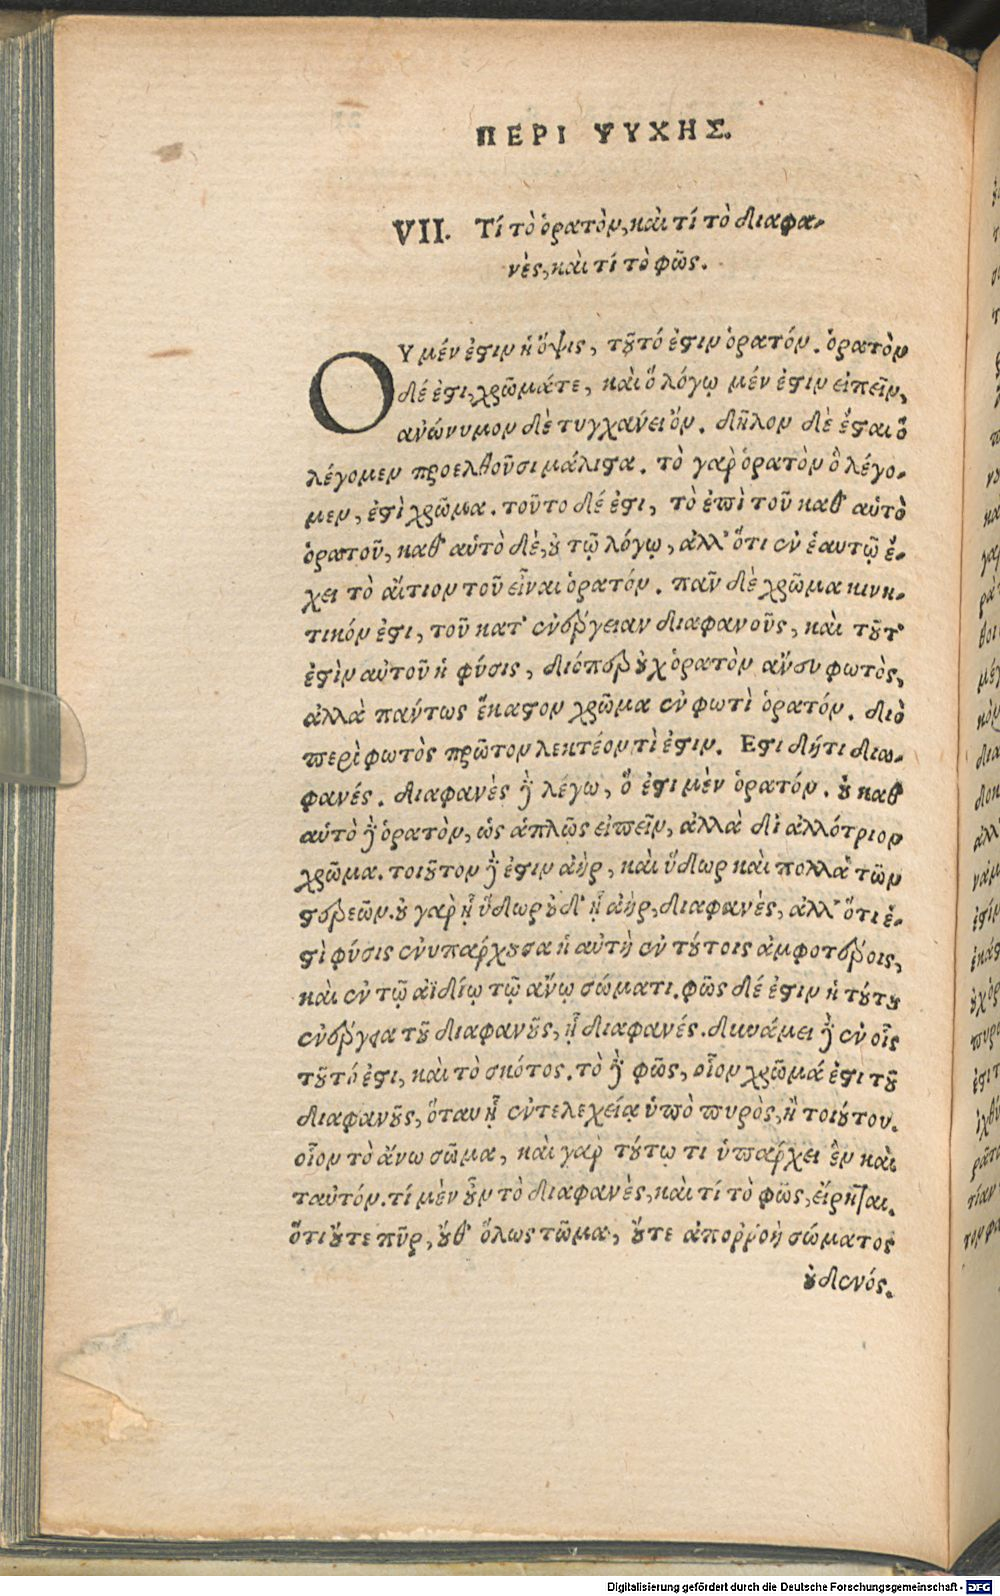 ΠΕΡΙ ΨΥΧΗΣ.
VII. Τί τὸ ὁρατὸν, καὶ τί τὸ διαφα-
νὲς, καὶ τί τὸ φῶς.
ΟΥ μέν ἐστιν ἡ ὄψις, τοῦτό ἐστιν ὁρατόν. ὁρατὸν
δέ ἐστι, χρῶμάτε, καὶ ὃ λόγῳ μέν ἐστιν εἰπεῖν,
ανώνυμον δὲ τυγχάνει ὄν. δῆλον δὲ ἔσται ὃ
λέγομεν προελθοῦσι μάλιστα. τὸ γαρ ὁρατὸν ὃ λέγο-
μεν, ἐστὶ χρῶμα. τοῦτο δέ ἐστι, τὸ ἐπὶ τοῦ καθ' αὑτὸ
ὁρατοῦ, καθ' αὑτὸ δὲ, οὐ τῷ λόγῳ, ἀλλ' ὅτι ἐν ἑαυτῷ ἔ-
χει τὸ αἴτιον τοῦ εἶναι ὁρατόν. παν δὲ χρῶμα κινη-
τικόν ἐστι, τοῦ κατ' ἐνέργειαν διαφανοῦς, καὶ τοῦτ'
ἐστὶν αὐτοῦ ἡ φύσις, διόπερ οὐχ ὁρατὸν ἄνευ φωτὸς,
ἀλλὰ πάντως ἕκαστον χρῶμα ἐν φωτὶ ὁρατόν. διὸ
περὶ φωτὸς πρῶτον λεκτέον τὶ ἐστιν. Εστι δήτι δια-
φανές. διαφανὲς δὲ λέγω, ὅ ἐστι μὲν ὁρατόν. οὐ καθ'
αὑτὸ δὲ ὁρατὸν, ὡς ἁπλῶς εἰπεῖν, ἀλλὰ δι ἀλλότριον
χρῶμα. τοιοῦτον δὲ ἐστιν ἀὴρ, καὶ ὕδωρ καὶ πολλὰ τῶν
στερεῶν. οὐ γαρ ᾗ ὕδωρ οὐδ' ᾗ ἀὴρ, διαφανὲς, ἀλλ' ὅτι ἐ-
στὶ φύσις ἐνυπαρχουσα ἡ αὐτὴ ἐν τούτοις ἀμφοτέροις,
καὶ ἐν τῷ αϊδίῳ τῷ ἄνω σώματι. φῶς δέ ἐστιν ἡ τούτου
ἐνέργεια τοῦ διαφανοῦς, ᾗ διαφανές. δυνάμει δὲ ἐν οἷς
τοῦτό ἐστι, καὶ τὸ σκότος. τὸ δὲ φῶς, οἷον χρῶμά ἐστι τοῦ
διαφανοῦς, ὅταν ᾖ ἐντελεχείᾳ ὑπὸ πυρὸς, ἢ τοιούτου.
οἷον τὸ ἄνω σῶμα, καὶ γαρ τούτῳ τι ὑπαρχει ἓν καὶ
ταὐτόν. τί μὲν οὖν τὸ διαφανὲς, καὶ τί τὸ φῶς, εἴρηται.
ὅτι οὔτε πῦρ, οὔθ' ὅλως τῶμα, οὔτε ἀπορῥοὴ σώματος
οὐδενός.
Digitalisierung gefördert durch die Deutsche Forschungsgemeinschaft - DFG